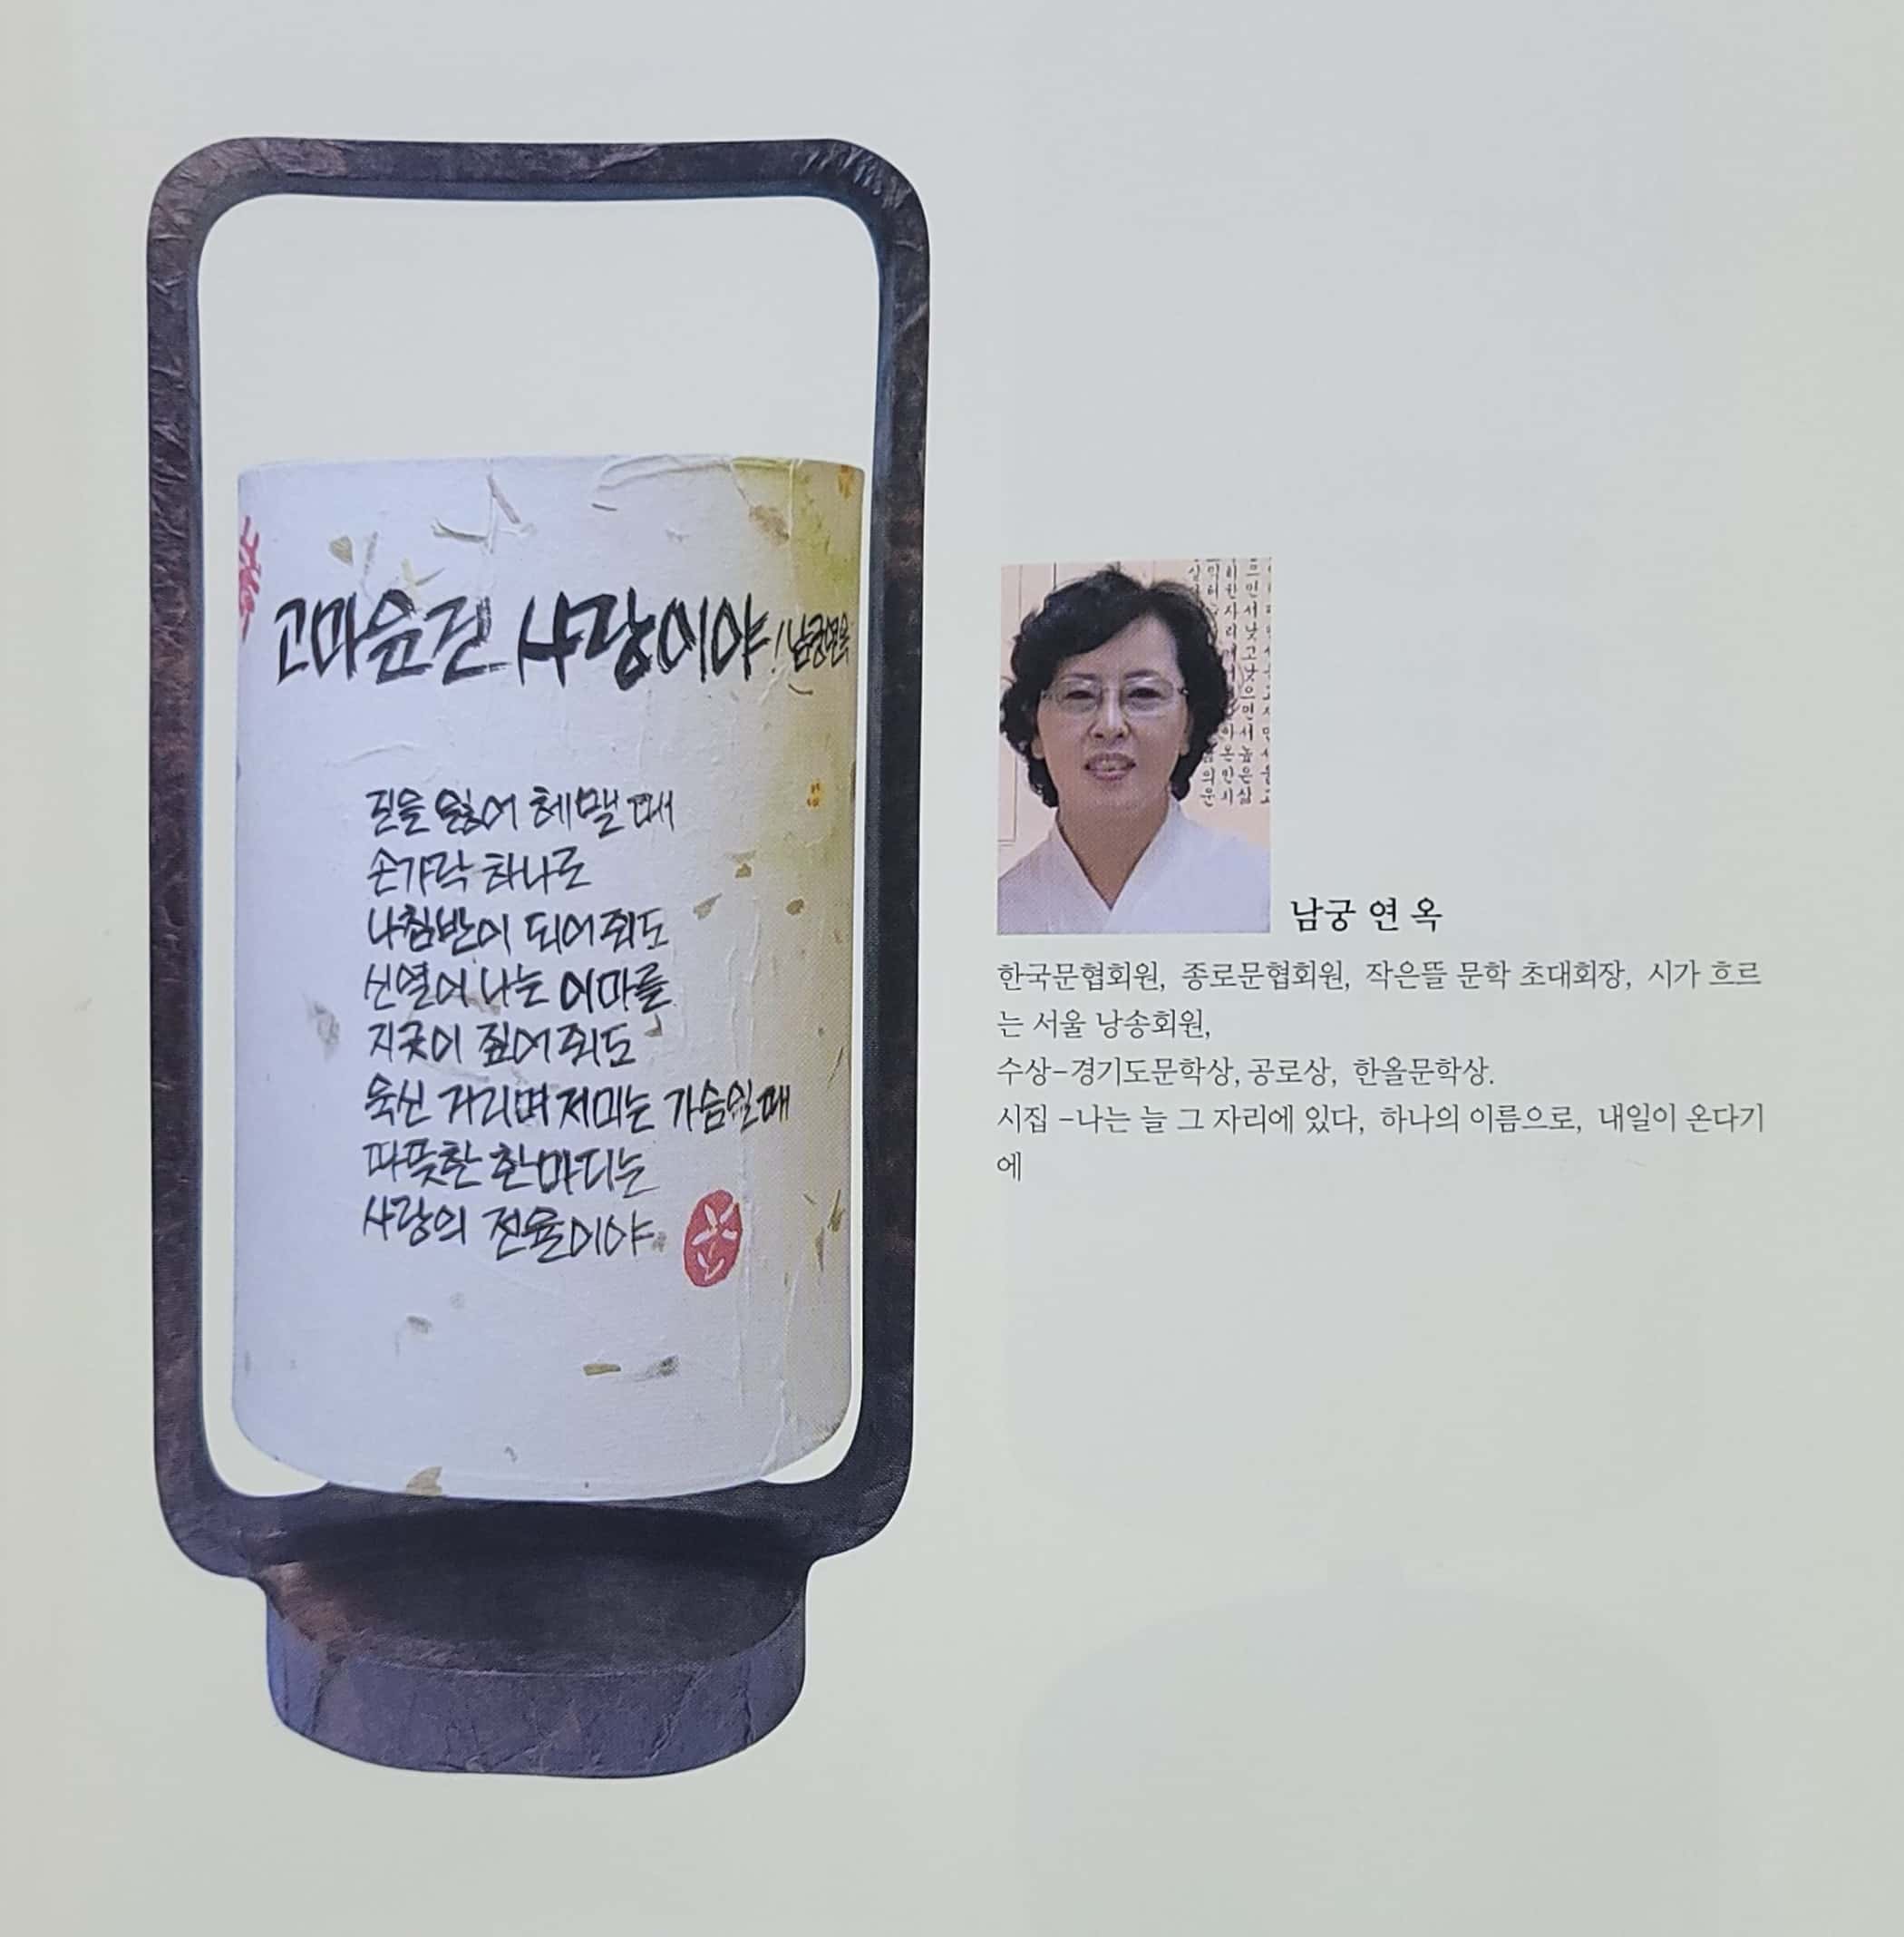 고마운건 사랑이야 / 남궁연옥
길을 잃어 헤맬 때
손가락 하나로
나침반이 되어줘도
신열이 나는 이마를
지긋이 짚어줘도
욱신 거리며 저미는 가슴일때
따뜻한 한마디는
사랑의 전율이야
남궁 연 옥
한국문협회원, 종로문협회원, 작은뜰 문학 초대회장, 시가 흐르
는 서울 낭송회원,
수상-경기도문학상, 공로상, 한올문학상.
시집 -나는 늘 그 자리에 있다, 하나의 이름으로, 내일이 온다기
에